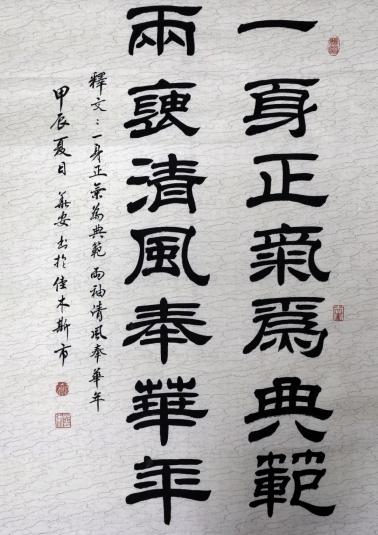 一身正氣爲典範
兩褎清風奉華年
釋文：一身正氣為典範兩袖清風奉華年
甲辰夏日華安书於佳木斯市